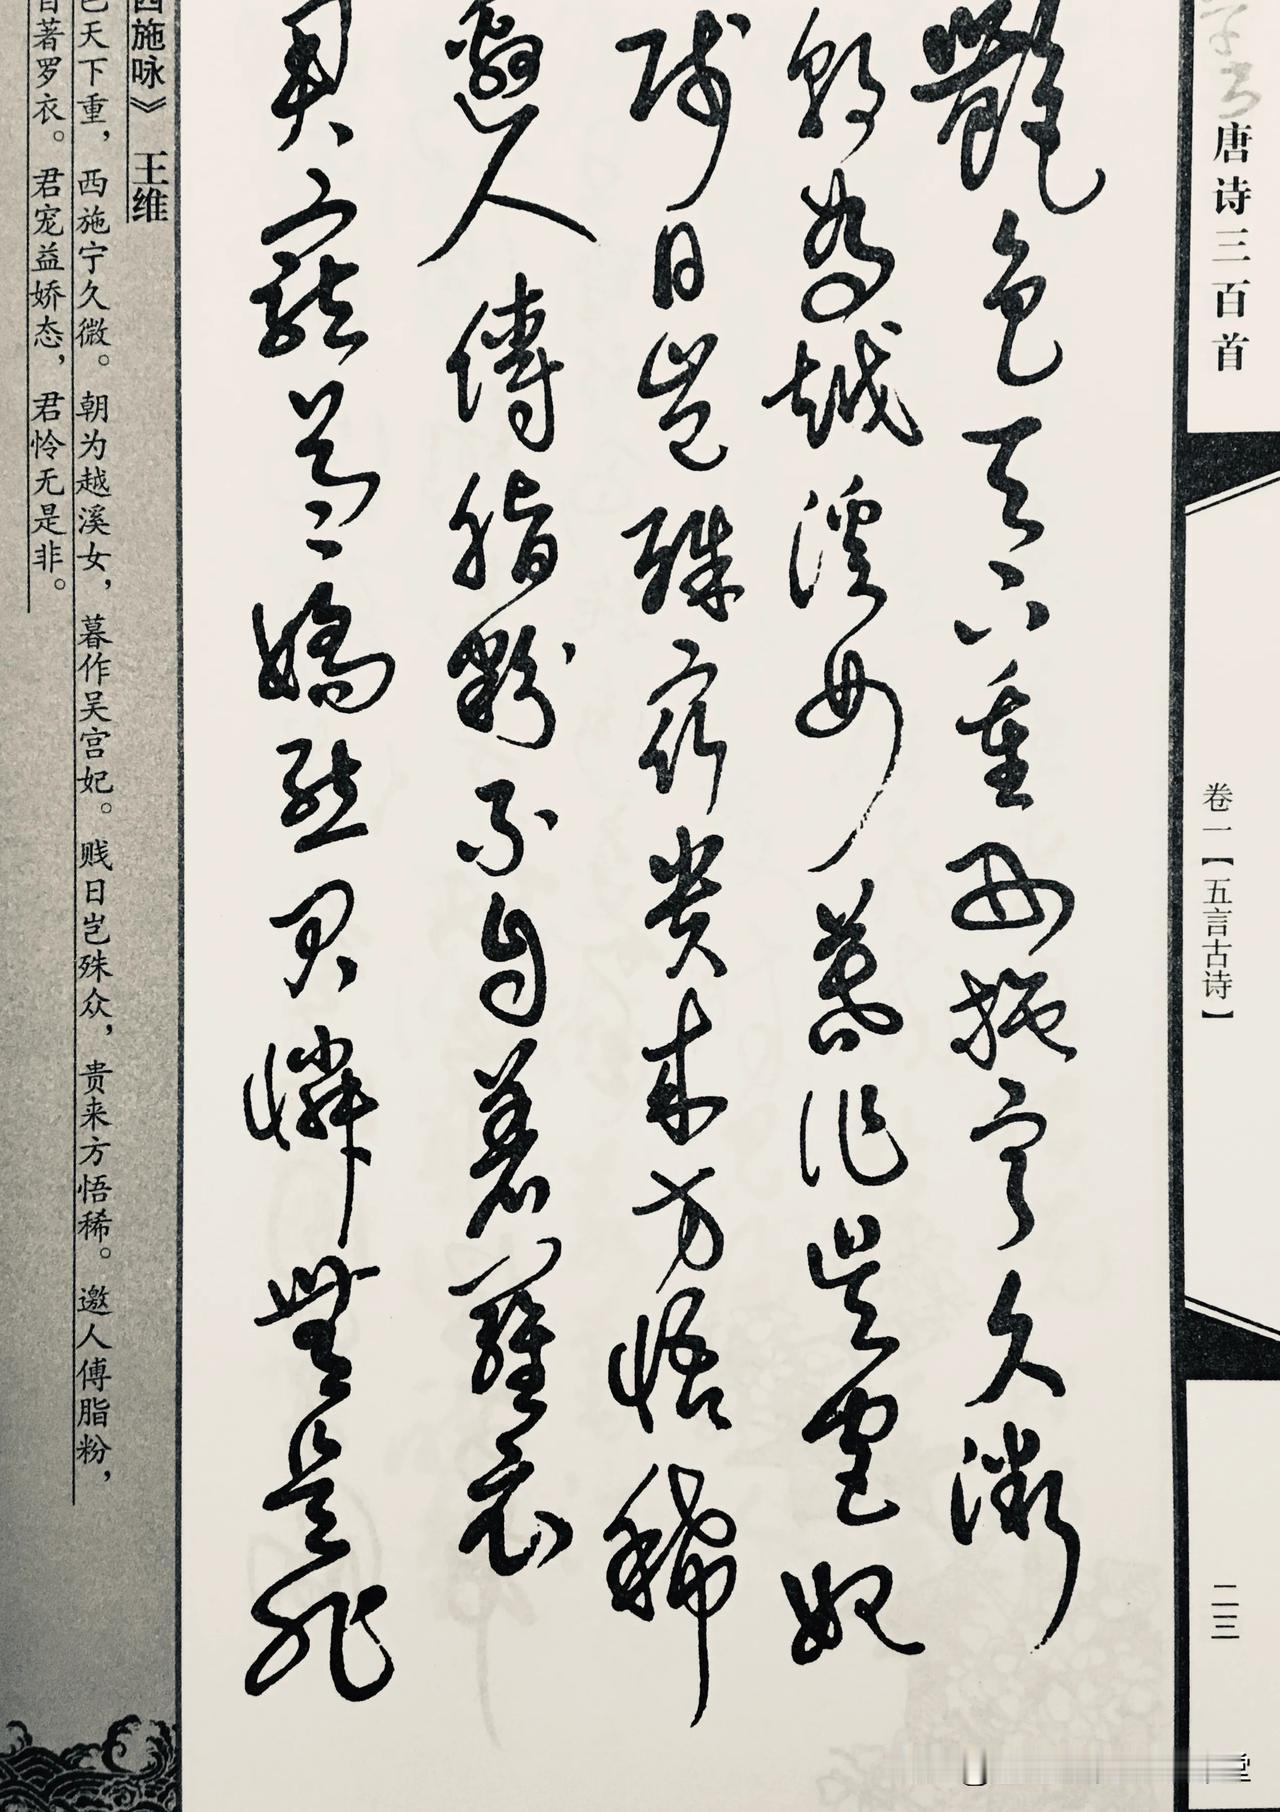 草书唐诗三百首
卷一【五言古诗】
二三
堂
艷色天下重西施寧久微
朝為越溪女暮作吳宮妃
賤日豈殊衆貴來方悟稀
邀人傅脂粉不自著羅衣
君寵益嬌態君憐無是非
西施咏》 王维
色天下重，西施宁久微。朝为越溪女，暮作吴宫妃。贱日岂殊众，贵来方悟稀。邀人傅脂粉，
自著罗衣。君宠益娇态，君怜无是非。